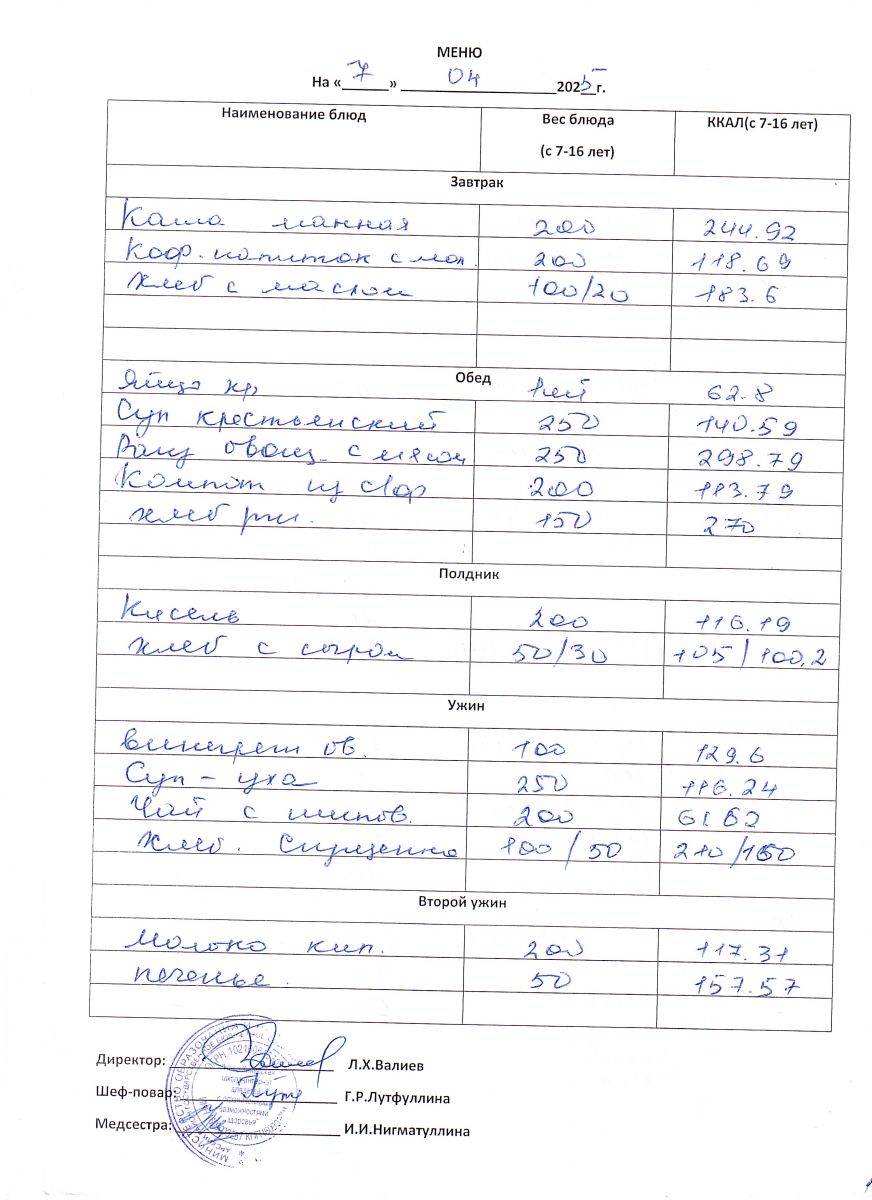 МЕНЮ
На «7» 04 2025г.
Наименование блюд Вес блюда (с 7-16 лет) ККАЛ(с 7-16 лет)
Завтрак
Каша манная 200 244.92
Коф. напиток с мол. 200 118.69
Хлеб с маслом 100/20 183.6
Обед
Яйцо 62.8
Суп крестьянский 250 140.59
Рагу овощ. с мясом 250 298.79
Компот из с/фр 200 113.79
Хлеб рж. 150 270
Полдник
Кисель 200 116.19
Хлеб с сыром 50/30 105/100,2
Ужин
Винегрет ов. 100 129.6
Суп – уха 250 116.24
Чай с шипов. 200
Хлеб. Сгущенка 100/50 210/160
Второй ужин
Молоко кип. 200 117.31
печенье. 50 157.57
Директор: Л.Х.Валиев
Шеф-повар: Г.Р.Лутфуллина
Медсестра: И.И.Нигматуллина